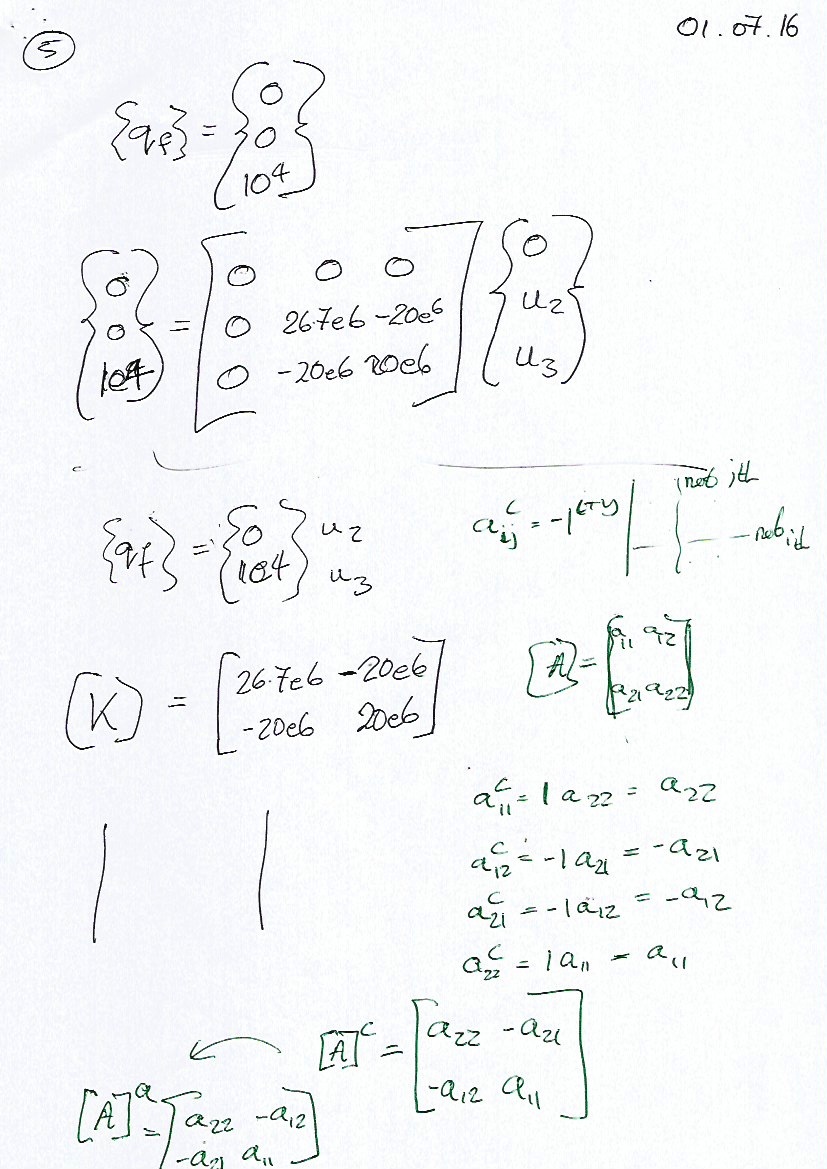 01.07.16
5
{qf} = {0
0
10^4}
{0
0
1e4} = [0 0 0
0 26.7e6 -20e6
0 -20e6 20e6] {0
u2
u3}
{qf} = {0
1e4} u2
u3
a_ij^c = -1^(i+y) | not jth
not ith
[A] = [a11 a12
a21 a22]
[K] = [26.7e6 -20e6
-20e6 20e6]
a11^c = 1 a22 = a22
a12^c = -1 a21 = -a21
a21^c = -1 a12 = -a12
a22^c = 1 a11 = a11
[A]^c = [a22 -a21
-a12 a11]
[A]^a = [a22 -a12
-a21 a11]